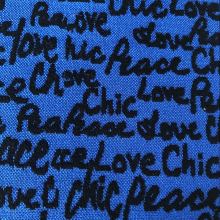 Peace Love
Love Chic Peace Love
Chic Chic
Love Peace
Chic Love
Peace Peace Love
Love Chic
Love & Chic Peace